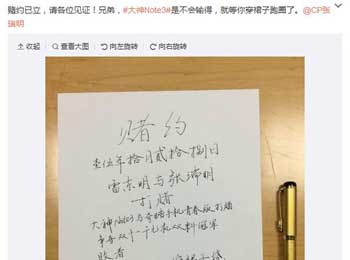 赌约已立，请各位见证！兄弟，#大神Note3#是不会输得，就等你穿裙子跑圈了。@CP张
瑞明
收起 查看大图 向左旋转 向右旋转
赌约
壹伍年拾月贰拾捌日
雷东明与张瑞明
打赌
大神Note3与奇酷手机青春版打赌
争夺双十一千元机双料冠军
败者